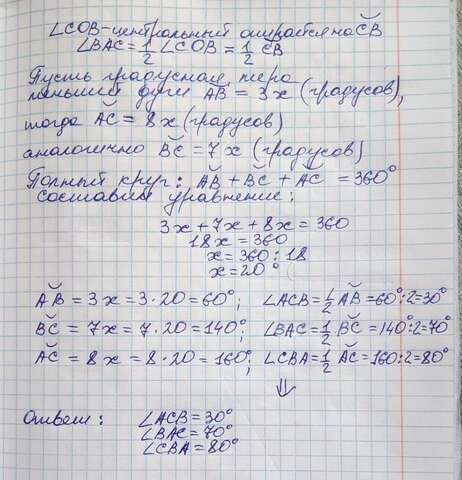 ∠COB-центральный опирается на C̆B
∠BAC = 1/2 ∠COB = 1/2 C̆B
Пусть градусная мера
меньшей дуги ĂB = 3x (градусов),
тогда ĂC = 8x (градусов)
аналогично B̆C = 7x (градусов)
Полный круг: ĂB + B̆C + ĂC = 360°
составим уравнение:
3x + 7x + 8x = 360
18x = 360
x = 360 : 18
x = 20°
ĂB = 3x = 3·20 = 60°; ∠ACB = 1/2 ĂB = 60°:2 = 30°
B̆C = 7x = 7·20 = 140°; ∠BAC = 1/2 B̆C = 140°:2 = 70°
ĂC = 8x = 8·20 = 160°; ∠CBA = 1/2 ĂC = 160:2 = 80°
⇓
Ответ: ∠ACB = 30°
∠BAC = 70°
∠CBA = 80°